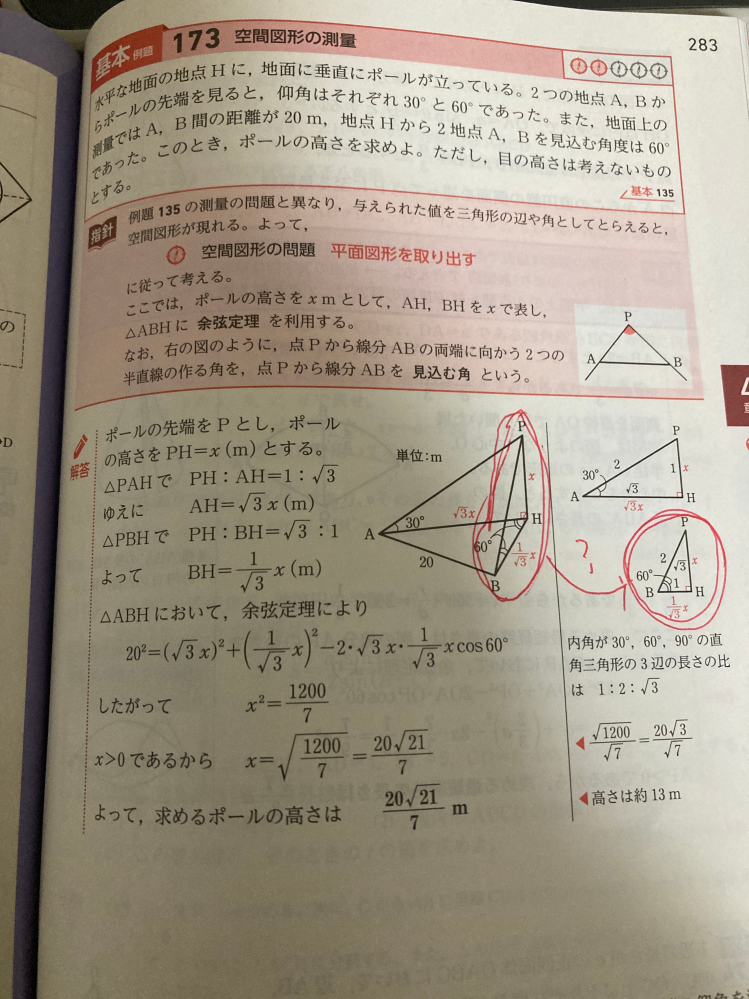 基本 例題 173 空間図形の測量
283
水平な地面の地点Hに，地面に垂直にポールが立っている。2つの地点A，Bか
らポールの先端を見ると，仰角はそれぞれ30°と60°であった。また，地面上の
測量ではA，B間の距離が20m，地点Hから2地点A，Bを見込む角度は60°
であった。このとき，ポールの高さを求めよ。ただし，目の高さは考えないもの
とする。
基本 135
指針
例題135の測量の問題と異なり，与えられた値を三角形の辺や角としてとらえると，
空間図形が現れる。よって，
空間図形の問題 平面図形を取り出す
に従って考える。
ここでは，ポールの高さをxmとして，AH，BHをxで表し，
△ABHに 余弦定理 を利用する。
なお，右の図のように，点Pから線分ABの両端に向かう2つの
半直線の作る角を，点Pから線分ABを 見込む角 という。
P
A
B
解答
ポールの先端をPとし，ポール
の高さをPH=x(m)とする。
△PAHで PH：AH=1：√3
ゆえに AH=√3x(m)
△PBHで PH：BH=√3：1
よって BH=1/√3 x(m)
△ABHにおいて，余弦定理により
20²=(√3x)²+(1/√3 x)²−2・√3x・1/√3 x cos60°
したがって x²=1200/7
x>0であるから x=√(1200/7)=20√21/7
よって，求めるポールの高さは 20√21/7 m
単位：m
P
x
√3x
H
A
30°
60°
1/√3 x
20
B
?
P
30°
2
1
x
A
√3
H
√3x
P
2
√3
x
60°
B
1
H
1/√3 x
内角が30°，60°，90°の直
角三角形の3辺の長さの比
は 1：2：√3
◀√1200/√7=20√3/√7
◀高さは約13m